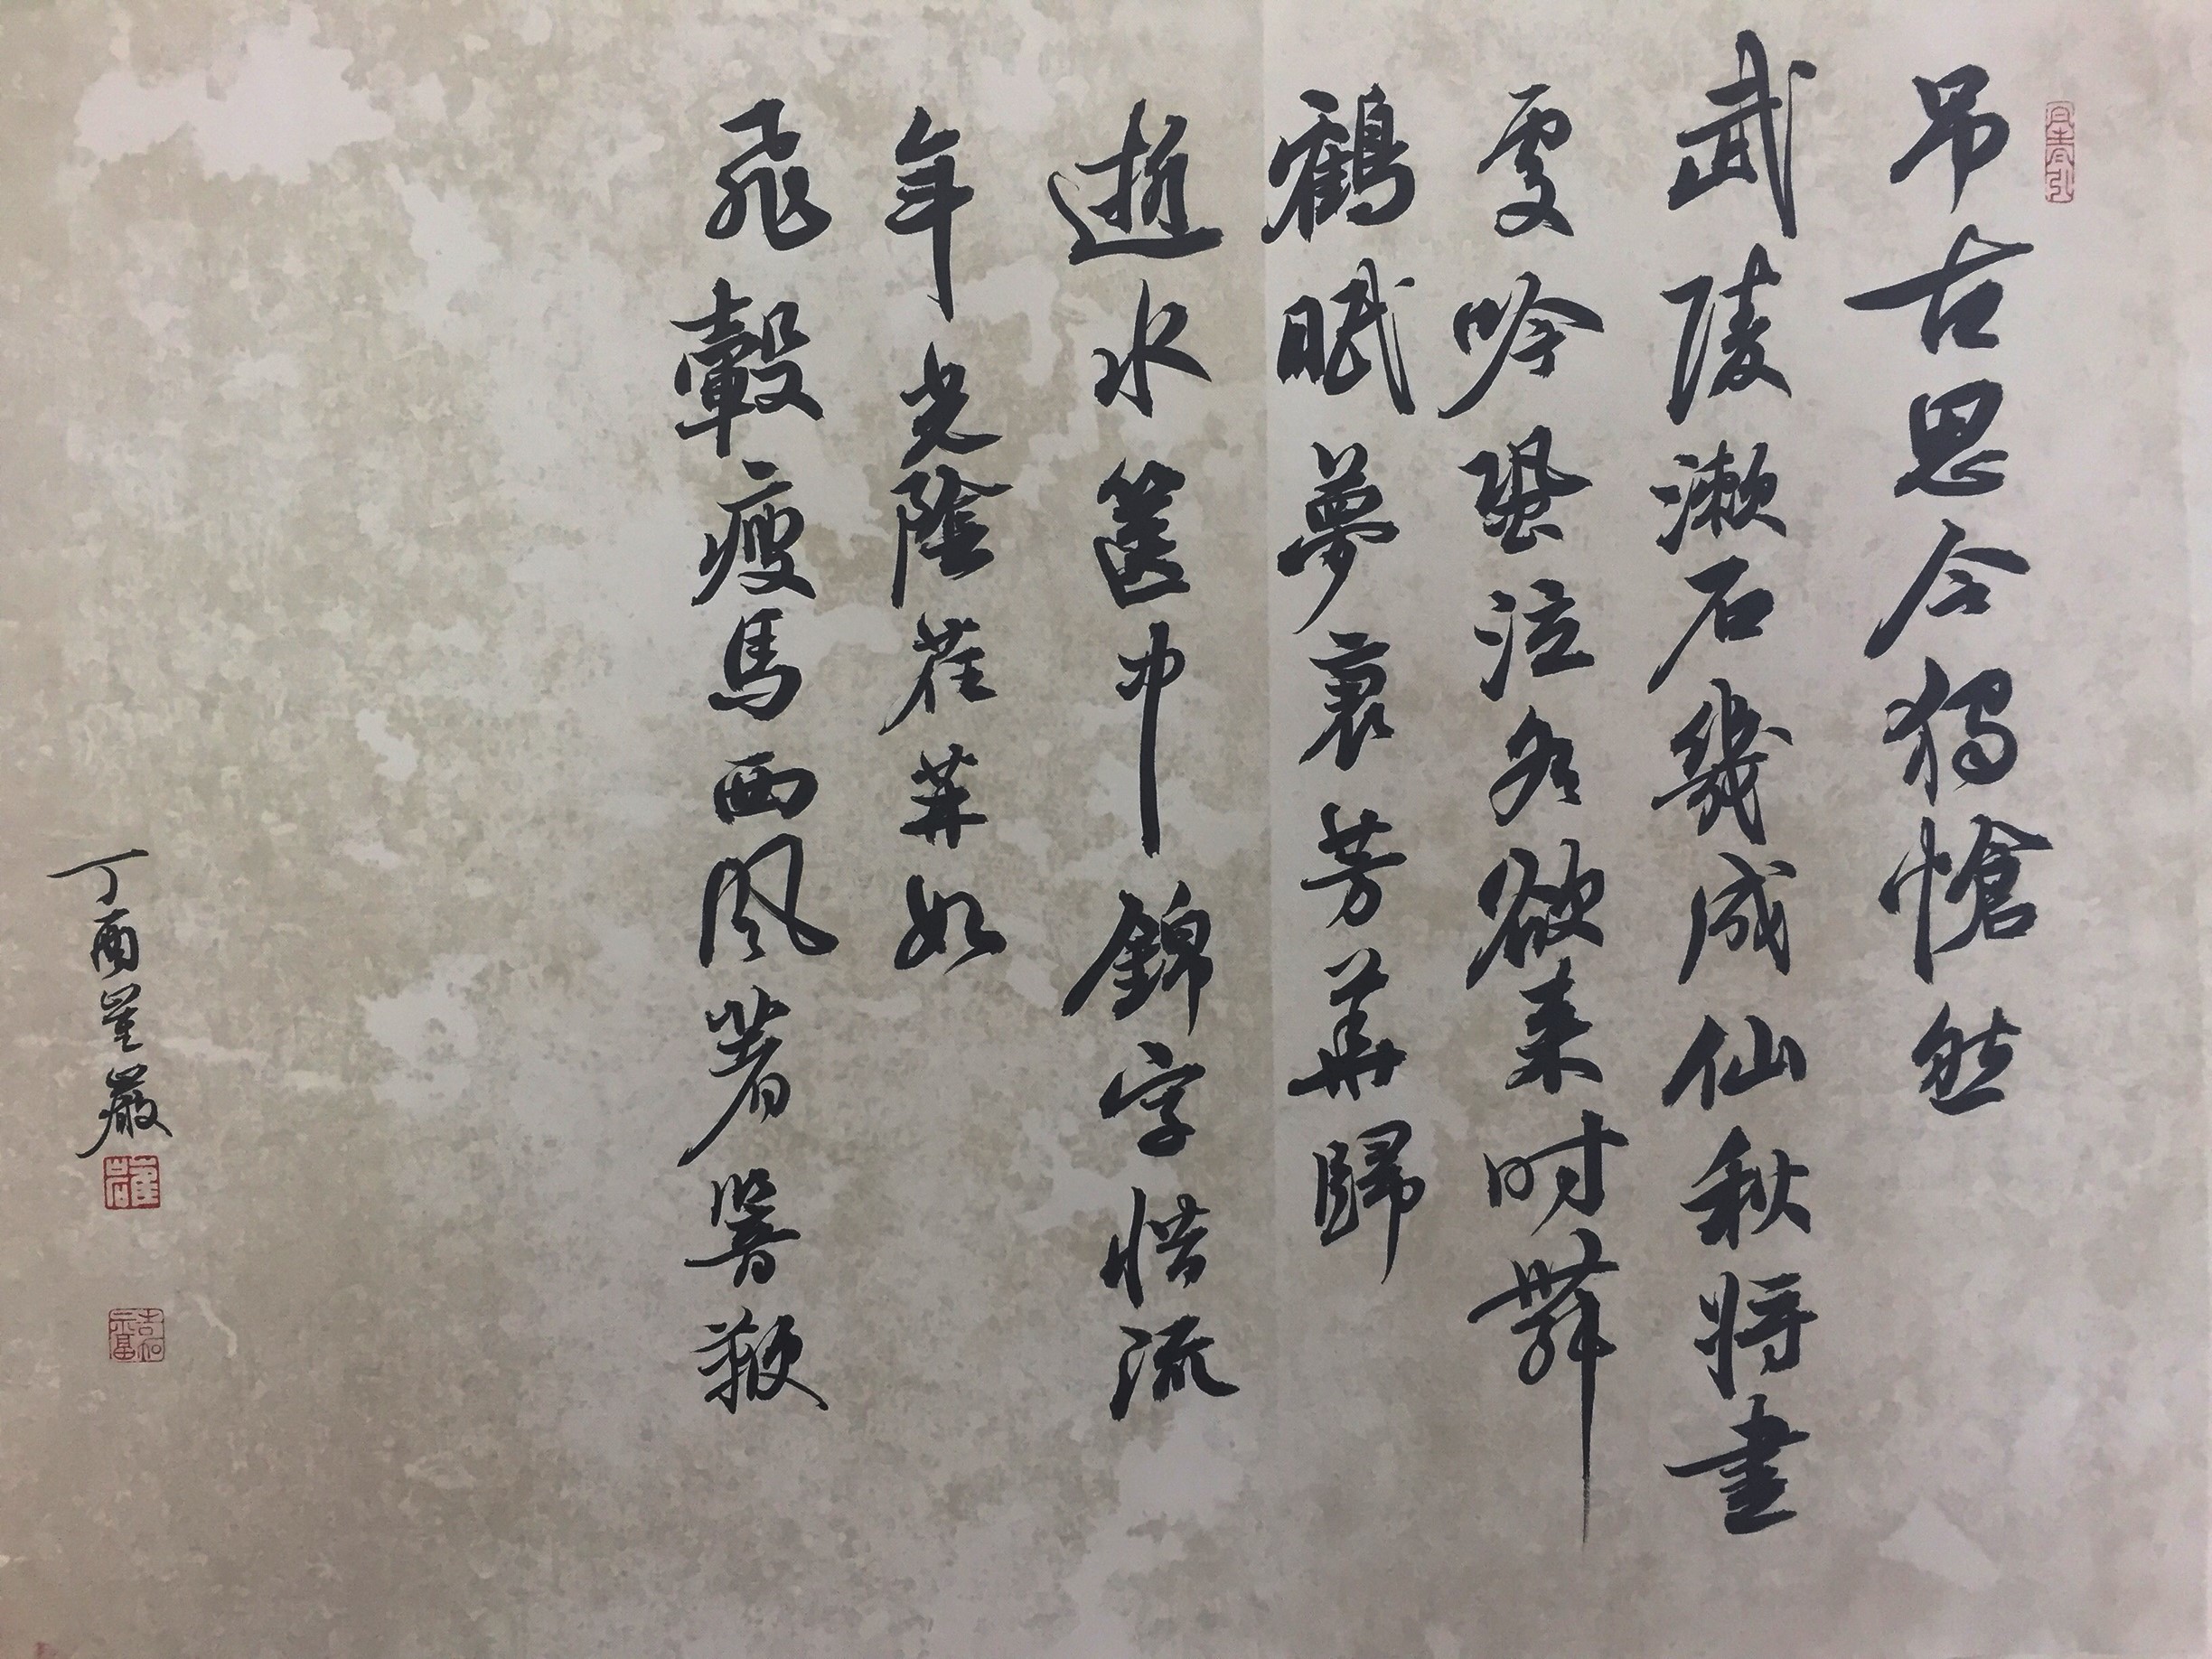 吊古思今獨愴然
武陵漱石幾成仙秋將盡
處吟蛩泣冬欲來时舞
鶴眠夢裏芳華歸
逝水篋中錦字惜流
年光陰荏苒如
飛轂瘦馬西風著鞭
丁酉崔巖